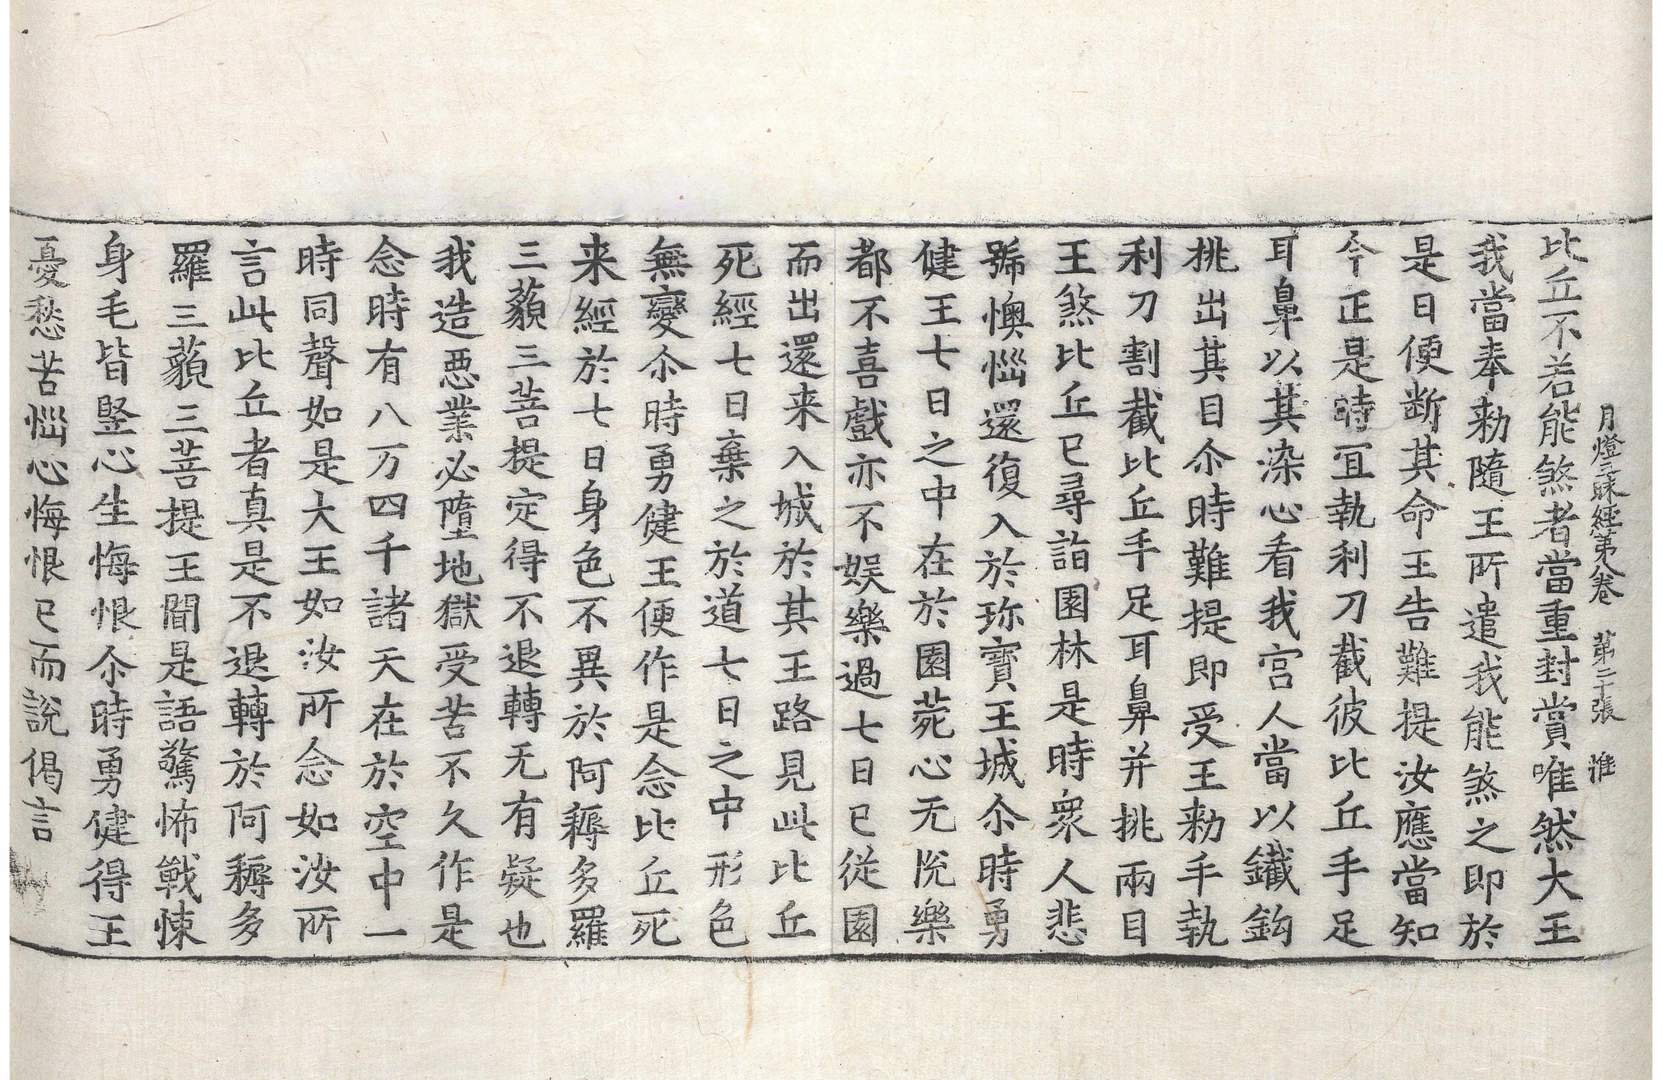 月燈三昧經第八卷　第二十張　淮
比丘不若能煞者當重封賞唯然大王
我當奉勑隨王所遣我能煞之即於
是日便断其命王告難提汝應當知
今正是時冝執利刀截彼比丘手足
耳鼻以其染心看我宮人當以鐵鈎
挑出其目尒時難提即受王勑手執
利刀割截比丘手足耳鼻并挑兩目
王煞比丘已尋詣園林是時衆人悲
號懊惱還復入於珎寶王城尒時勇
健王七日之中在於園苑心无恱樂
都不喜戲亦不娛樂過七日已從園
而出還来入城於其王路見此比丘
死經七日棄之於道七日之中形色
無變尒時勇健王便作是念比丘死
来經於七日身色不異於阿耨多羅
三藐三菩提定得不退轉无有疑也
我造惡業必墮地獄受苦不久作是
念時有八万四千諸天在於空中一
時同聲如是大王如汝所念如汝所
言此比丘者真是不退轉於阿耨多
羅三藐三菩提王聞是語驚怖戰悚
身毛皆竪心生悔恨尒時勇健得王
憂愁苦惱心悔恨已而說偈言